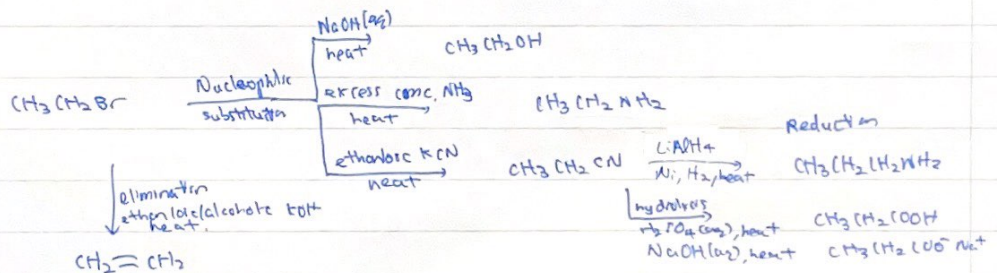 NaOH(aq)
heat
CH3 CH2 OH
CH3 CH2 Br
Nucleophilic
substitution
excess conc. NH3
heat
CH3 CH2 NH2
ethanolic KCN
heat
CH3 CH2 CN
LiAlH4
Ni, H2, heat
Reduction
CH3 CH2 CH2 NH2
hydrolysis
H2SO4(aq), heat
CH3 CH2 COOH
NaOH(aq), heat
CH3 CH2 COO- Na+
elimination
ethanolic/alcoholic KOH
heat.
CH2=CH2